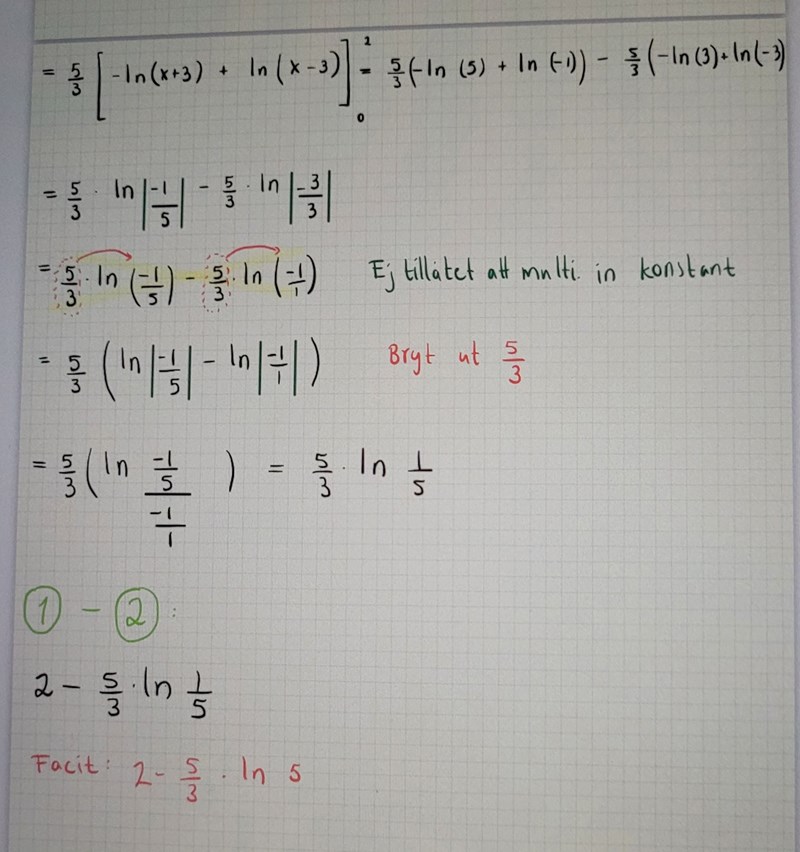 = 5/3 [ -ln(x+3) + ln(x-3) ]₀² = 5/3 (-ln (5) + ln (-1)) - 5/3 (-ln(3) + ln(-3)
= 5/3 · ln |-1/5| - 5/3 · ln |-3/3|
= 5/3 · ln (-1/5) - 5/3 · ln (-1/1) Ej tillåtet att multi. in konstant
= 5/3 ( ln |-1/5| - ln |-1/1| ) Bryt ut 5/3
= 5/3 ( ln (-1/5)/(-1/1) ) = 5/3 · ln 1/5
① - ② :
2 - 5/3 · ln 1/5
Facit: 2 - 5/3 · ln 5